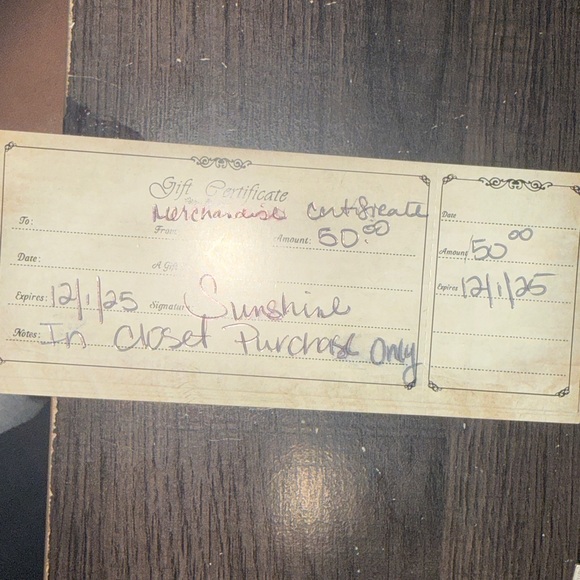 Gift Certificate
Merchandise Certificate
To:
From:
Amount: 50.00
Date:
A Gift
Expires: 12/1/25 Signature Sunshine
Notes: In Closet Purchase Only
Date
Amount 50 00
Expires 12/1/25